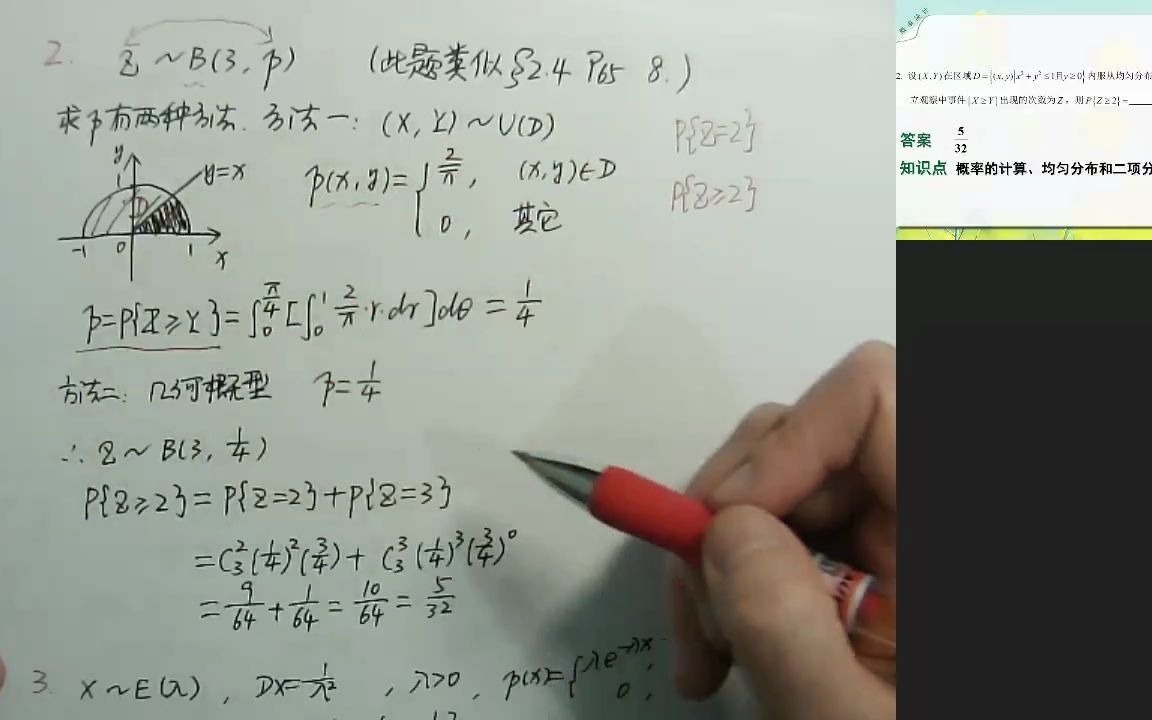 2. Z ~ B(3, p) (此题类似§2.4 P65 8.)
求p有两种方法. 方法一: (X, Y) ~ U(D)
P{Z=2}
P{Z≥2}
y
1
y=x
D
-1 0 1 x
p(x,y)= { 2/π, (x,y)∈D
0, 其它
p=P{X≥Y}=∫₀^{π/4}[∫₀^1 2/π·r·dr]dθ = 1/4
方法二: 几何概型 p=1/4
∴ Z ~ B(3, 1/4)
P{Z≥2}= P{Z=2}+P{Z=3}
=C₃²(1/4)²(3/4)+ C₃³(1/4)³(3/4)⁰
=9/64+1/64=10/64=5/32
3. X~E(λ), DX=1/λ², λ>0, p(x)={λe^{-λx},
0,
概率统计
2. 设(X,Y)在区域D={(x,y)|x²+y²≤1且y≥0}内服从均匀分布
立观察中事件{X≥Y}出现的次数为Z，则P{Z≥2}=____
答案 5/32
知识点 概率的计算、均匀分布和二项分